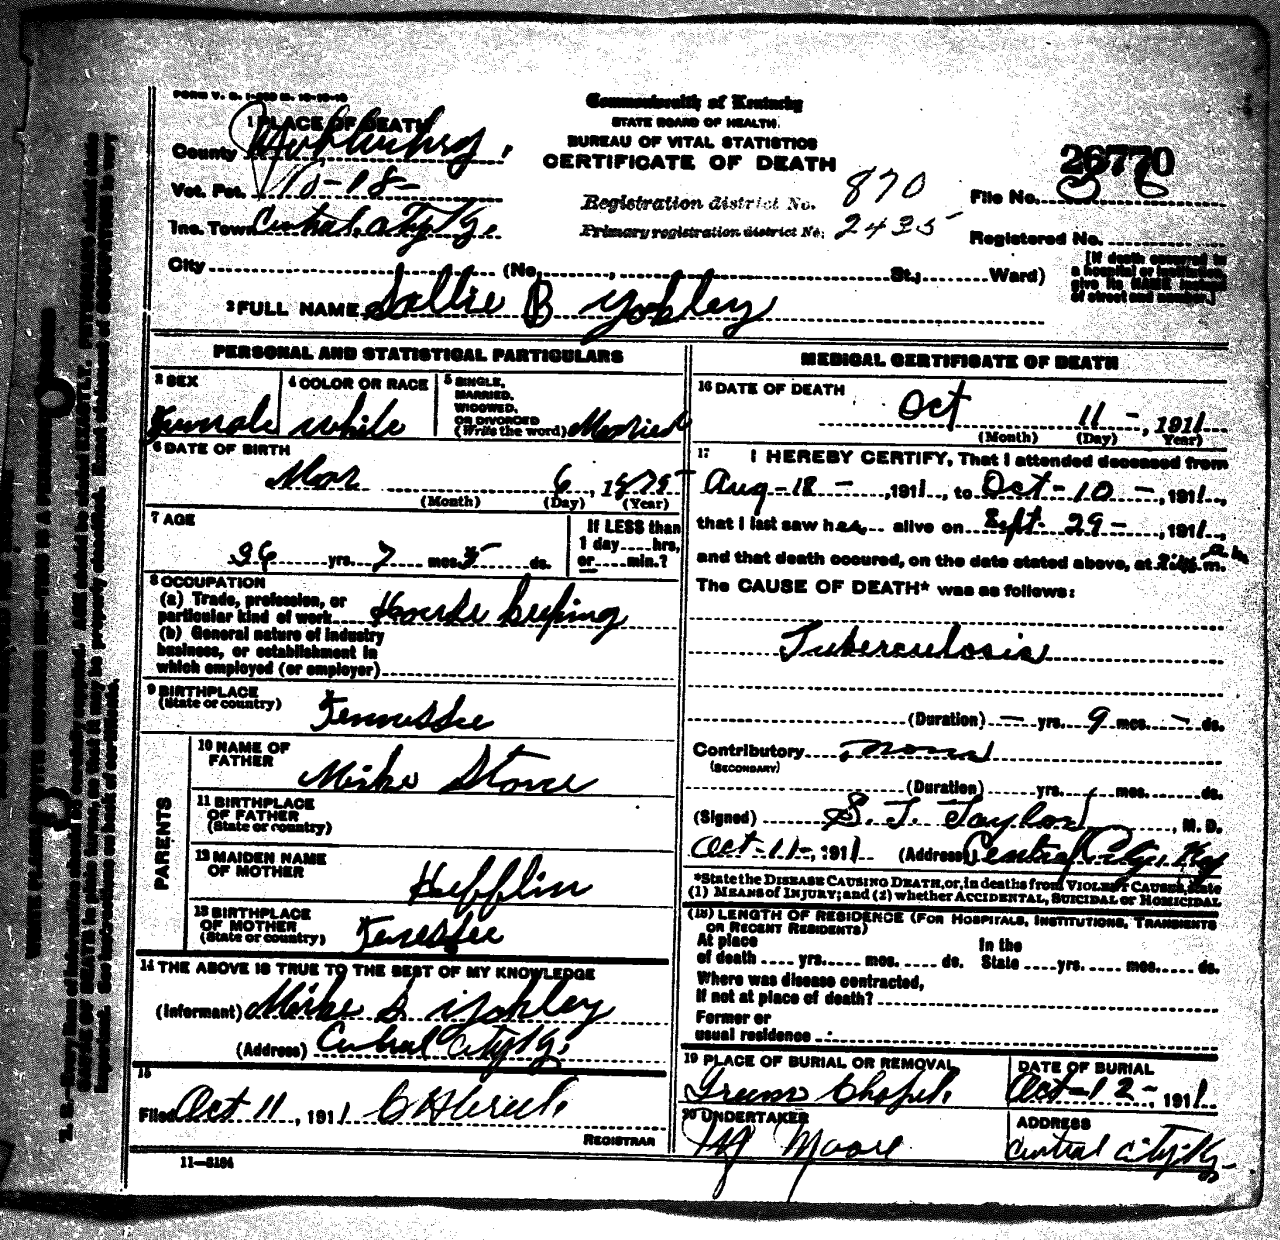 Commonwealth of Kentucky
STATE BOARD OF HEALTH
BUREAU OF VITAL STATISTICS
CERTIFICATE OF DEATH
1 PLACE OF DEATH
County
Vot. Pct. 10-18-
Inc. Town Central City Ky.
Registration district No. 870
Primary registration district No. 2435
File No. 26770
Registered No.
City (No. , St.; Ward)
[If death occurred in
a hospital or institution,
give its NAME instead
of street and number.]
2 FULL NAME Sallie B Yokley
PERSONAL AND STATISTICAL PARTICULARS
3 SEX
Female
4 COLOR OR RACE
white
5 SINGLE,
MARRIED,
WIDOWED,
OR DIVORCED
(Write the word) Married
6 DATE OF BIRTH
Mar 6, 1875
(Month) (Day) (Year)
7 AGE
36 yrs. 7 mos. 5 ds.
If LESS than
1 day....hrs,
or....min.?
8 OCCUPATION
(a) Trade, profession, or
particular kind of work House keeping
(b) General nature of industry
business, or establishment in
which employed (or employer)
9 BIRTHPLACE
(State or country) Tennessee
PARENTS
10 NAME OF
FATHER
Mike Stone
11 BIRTHPLACE
OF FATHER
(State or country)
12 MAIDEN NAME
OF MOTHER
Hefflin
13 BIRTHPLACE
OF MOTHER
(State or country) Tenessee
14 THE ABOVE IS TRUE TO THE BEST OF MY KNOWLEDGE
(Informant) Mike S Yokley
(Address) Central City Ky.
15
Filed Oct 11, 1911
REGISTRAR
11-3194
MEDICAL CERTIFICATE OF DEATH
16 DATE OF DEATH
Oct 11-, 1911
(Month) (Day) Year)
17 I HEREBY CERTIFY, That I attended deceased from
Aug-18-, 1911, to Oct-10-, 1911,
that I last saw her alive on Sept. 29-, 1911,
and that death occured, on the date stated above, at m.
The CAUSE OF DEATH* was as follows:
Tuberculosis
(Duration) — yrs. 9 mos. - ds.
Contributory None
(SECONDARY)
(Duration) yrs. mos. ds.
(Signed) S. T. Taylor, M. D.
Oct-11-, 1911 (Address) Central City, Ky
*State the DISEASE CAUSING DEATH, or, in deaths from VIOLENT CAUSES, state
(1) MEANS of INJURY; and (2) whether ACCIDENTAL, SUICIDAL or HOMICIDAL
(18) LENGTH OF RESIDENCE (FOR HOSPITALS, INSTITUTIONS, TRANSIENTS
OR RECENT RESIDENTS)
At place
of death .... yrs. .... mos. .... ds.
In the
State .... yrs. .... mos. .... ds.
Where was disease contracted,
If not at place of death?
Former or
usual residence
19 PLACE OF BURIAL OR REMOVAL
Green Chapel.
DATE OF BURIAL
Oct-12-, 1911
20 UNDERTAKER
Moore
ADDRESS
Central City-Ky-